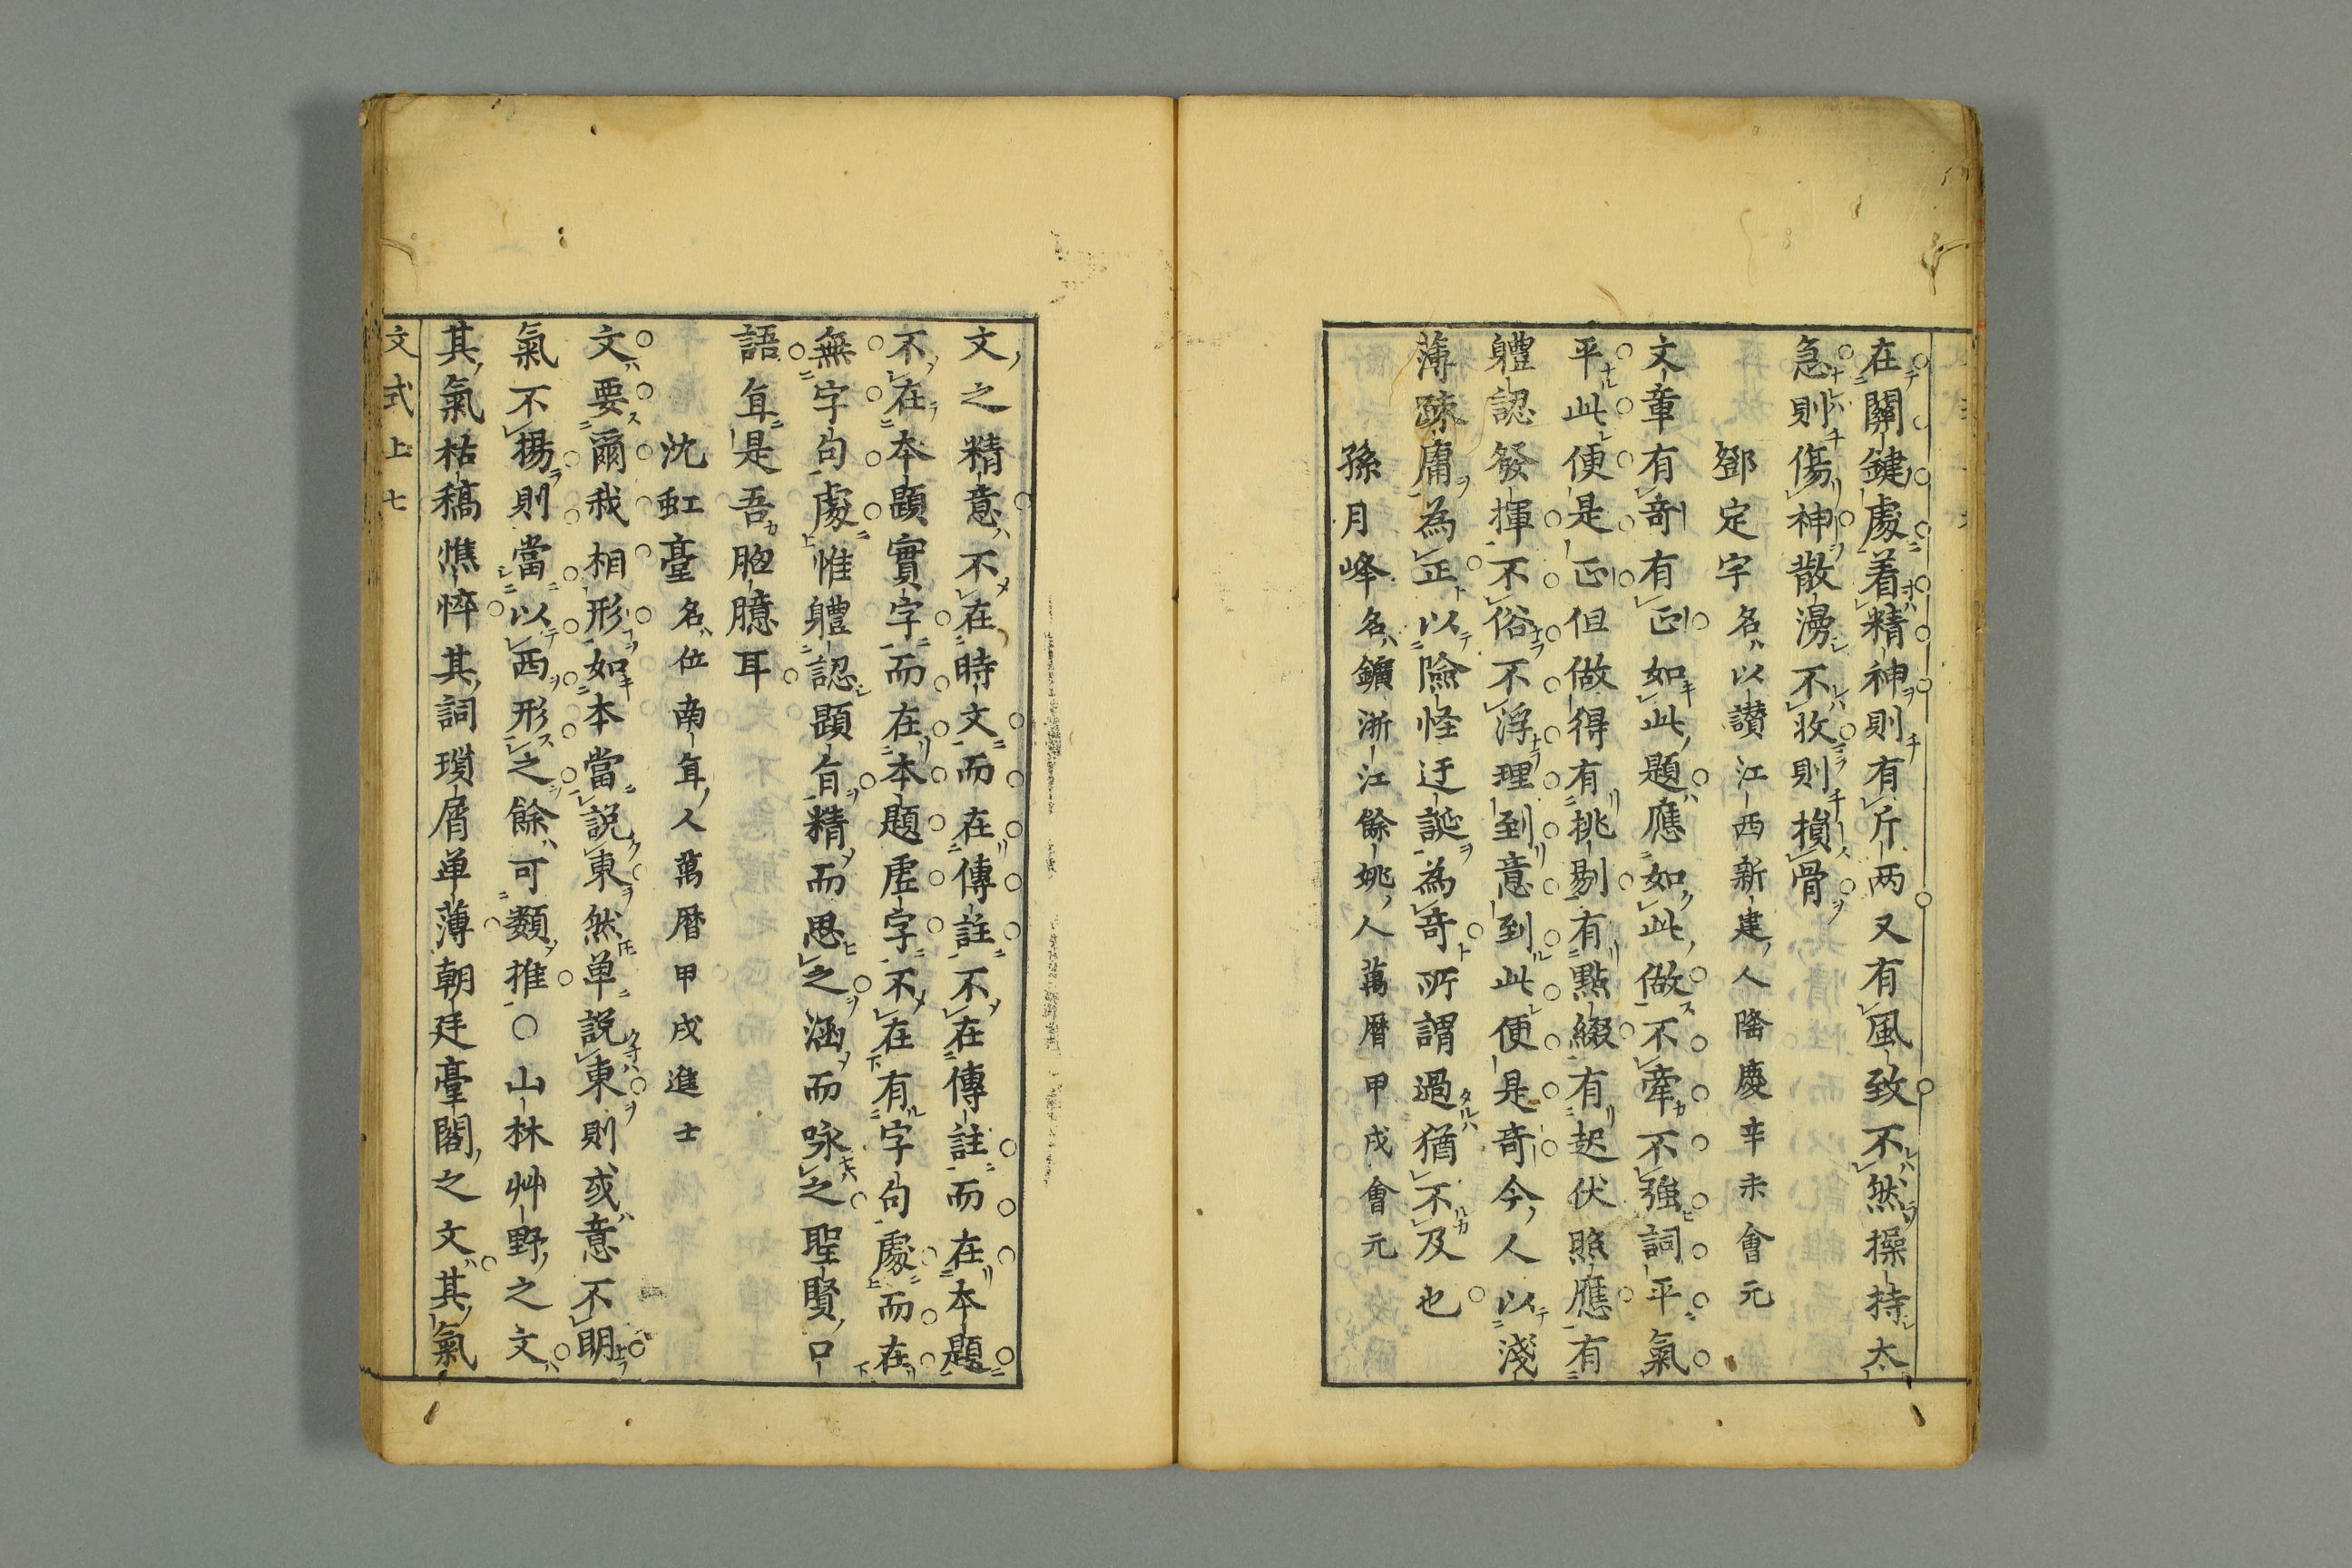 在關鍵處着精神則有斤两又有風致不然操持太
急則傷神散湯不收則損骨
鄧定宇名以讃江西新建人隆慶辛未會元
文章有奇有正如此題應如此做不牽不強詞平氣
平此便是正但做得有挑剔有點綴有起伏照應有
軆認發揮不俗不浮理到意到此便是奇今人以淺
薄踈庸為正以險怪迂誕為奇所謂過猶不及也
孫月峰名鑛浙江餘姚人萬曆甲戌會元
文之精意不在時文而在傳註不在傳註而在本題
不在本題實字而在本題虛字不在有字句處而在
無字句處惟軆認題旨精而思之涵而咏之聖賢口
語旨是吾胸臆耳
沈虹臺名位南直人萬曆甲戌進士
文要爾我相形如本當説東然单説東則或意不明
氣不揚則當以西形之餘可類推○山林艸野之文
其氣枯槁憔悴其詞瑣屑单薄朝廷臺閣之文其氣
文式上 七